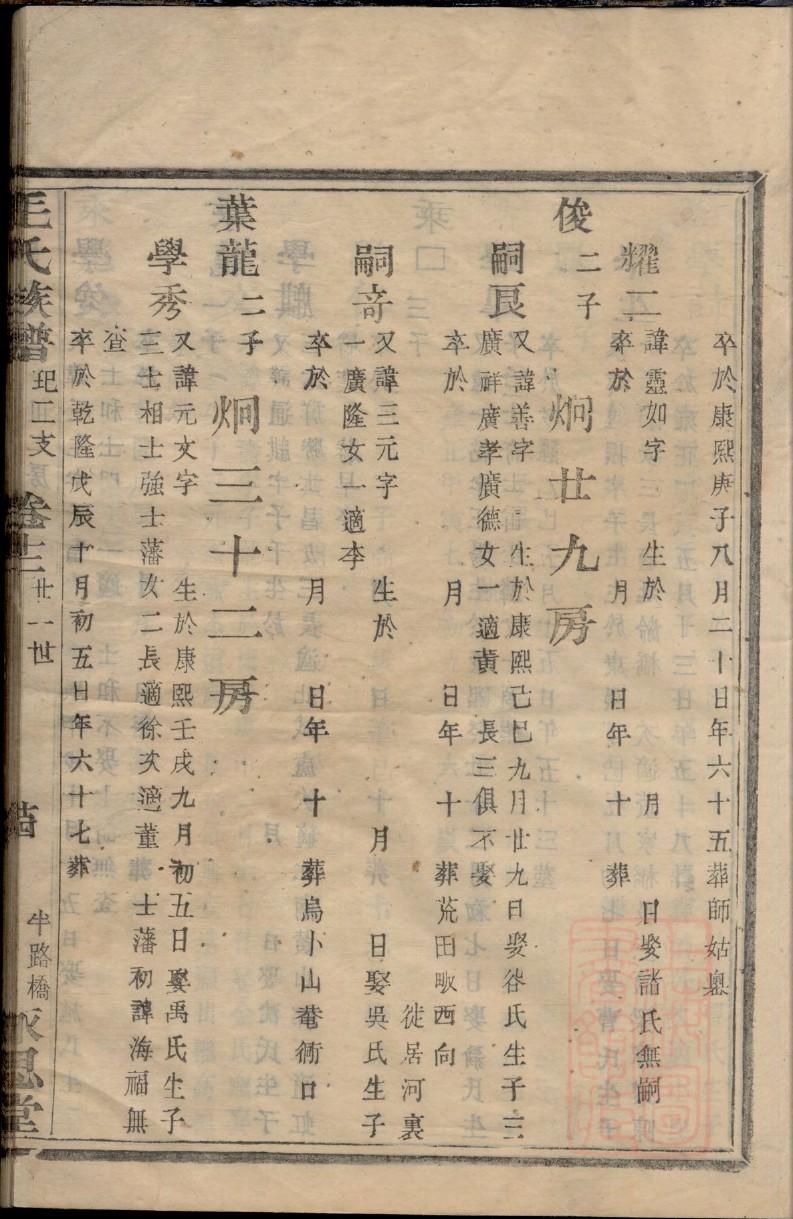 卒於康熙庚子八月二十日年六十五葬師姑墺
耀二 諱靈如字 生於 月 日娶諸氏無嗣
卒於 月 日年 十 葬
俊二子 炯廿九房
嗣良 又諱善字 生於康熙己巳九月廿九日娶谷氏生子三
廣祥廣孝廣德女一適黃 長三俱不娶 徙居河裏
卒於 月 日年 十 葬荒田畈西向
嗣奇 又諱三元字 生於 月 日娶吳氏生子
一廣隆女一適李
卒於 月 日年 十 葬烏小山菴衕口
葉龍二子 炯三十二房
學秀 又諱元文字 生於康熙壬戌九月初五日娶禹氏生子
三士相士強士藩女二長適徐次適董 士藩初諱海福無
查
卒於乾隆戊辰十月初五日年六十七葬
毛氏族譜 玘二支 卷十二 廿一世 半路橋 永思堂